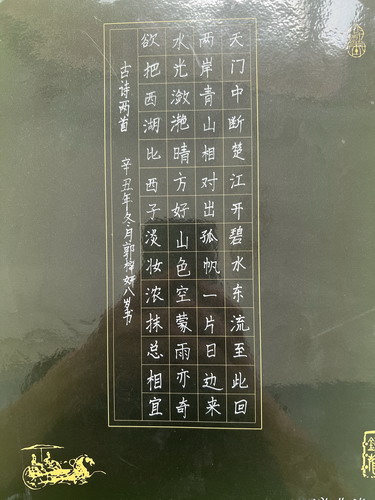 天门中断楚江开碧水东流至此回
两岸青山相对出孤帆一片日边来
水光潋滟晴方好山色空蒙雨亦奇
欲把西湖比西子淡妆浓抹总相宜
古诗两首 辛丑年冬月郭梓妍八岁书